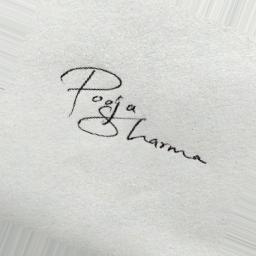 Pooja
Sharma